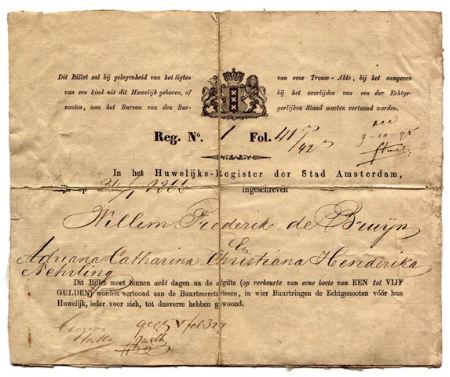 Dit Billet zal bij gelegenheid van het ligten van eene Trouw-Akte, bij het aangeven
van een kind uit dit Huwelijk geboren, of bij het overlijden van een der Echtge-
nooten, aan het Bureau van den Bur- gerlijken Stand moeten vertoond worden.
Reg. No. 1 Fol. 41
42
9-10-95
In het Huwelijks-Register der Stad Amsterdam,
ingeschreven
Willem Frederik de Bruijn
En
Adriana Catharina Christiana Henderika
Nehrling
Dit Billet moet binnen acht dagen na de afgifte (op verbeurte van eene boete van EEN tot VIJF
GULDEN) worden vertoond aan de Buurtsecretarissen, in wier Buurtringen de Echtgenooten vóór hun
Huwelijk, ieder voor zich, tot dusverre hebben gewoond.